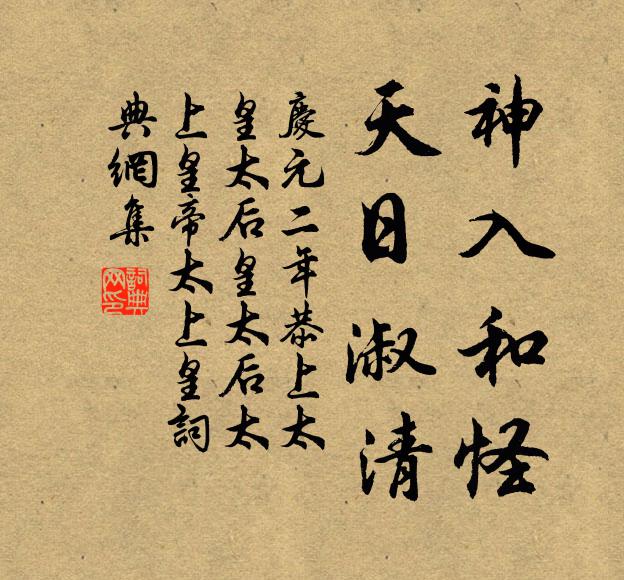 神入和怪
天日淑清
慶元二年恭上太
皇太后皇太后太
上皇帝太上皇詞
典網集
詞典
网印